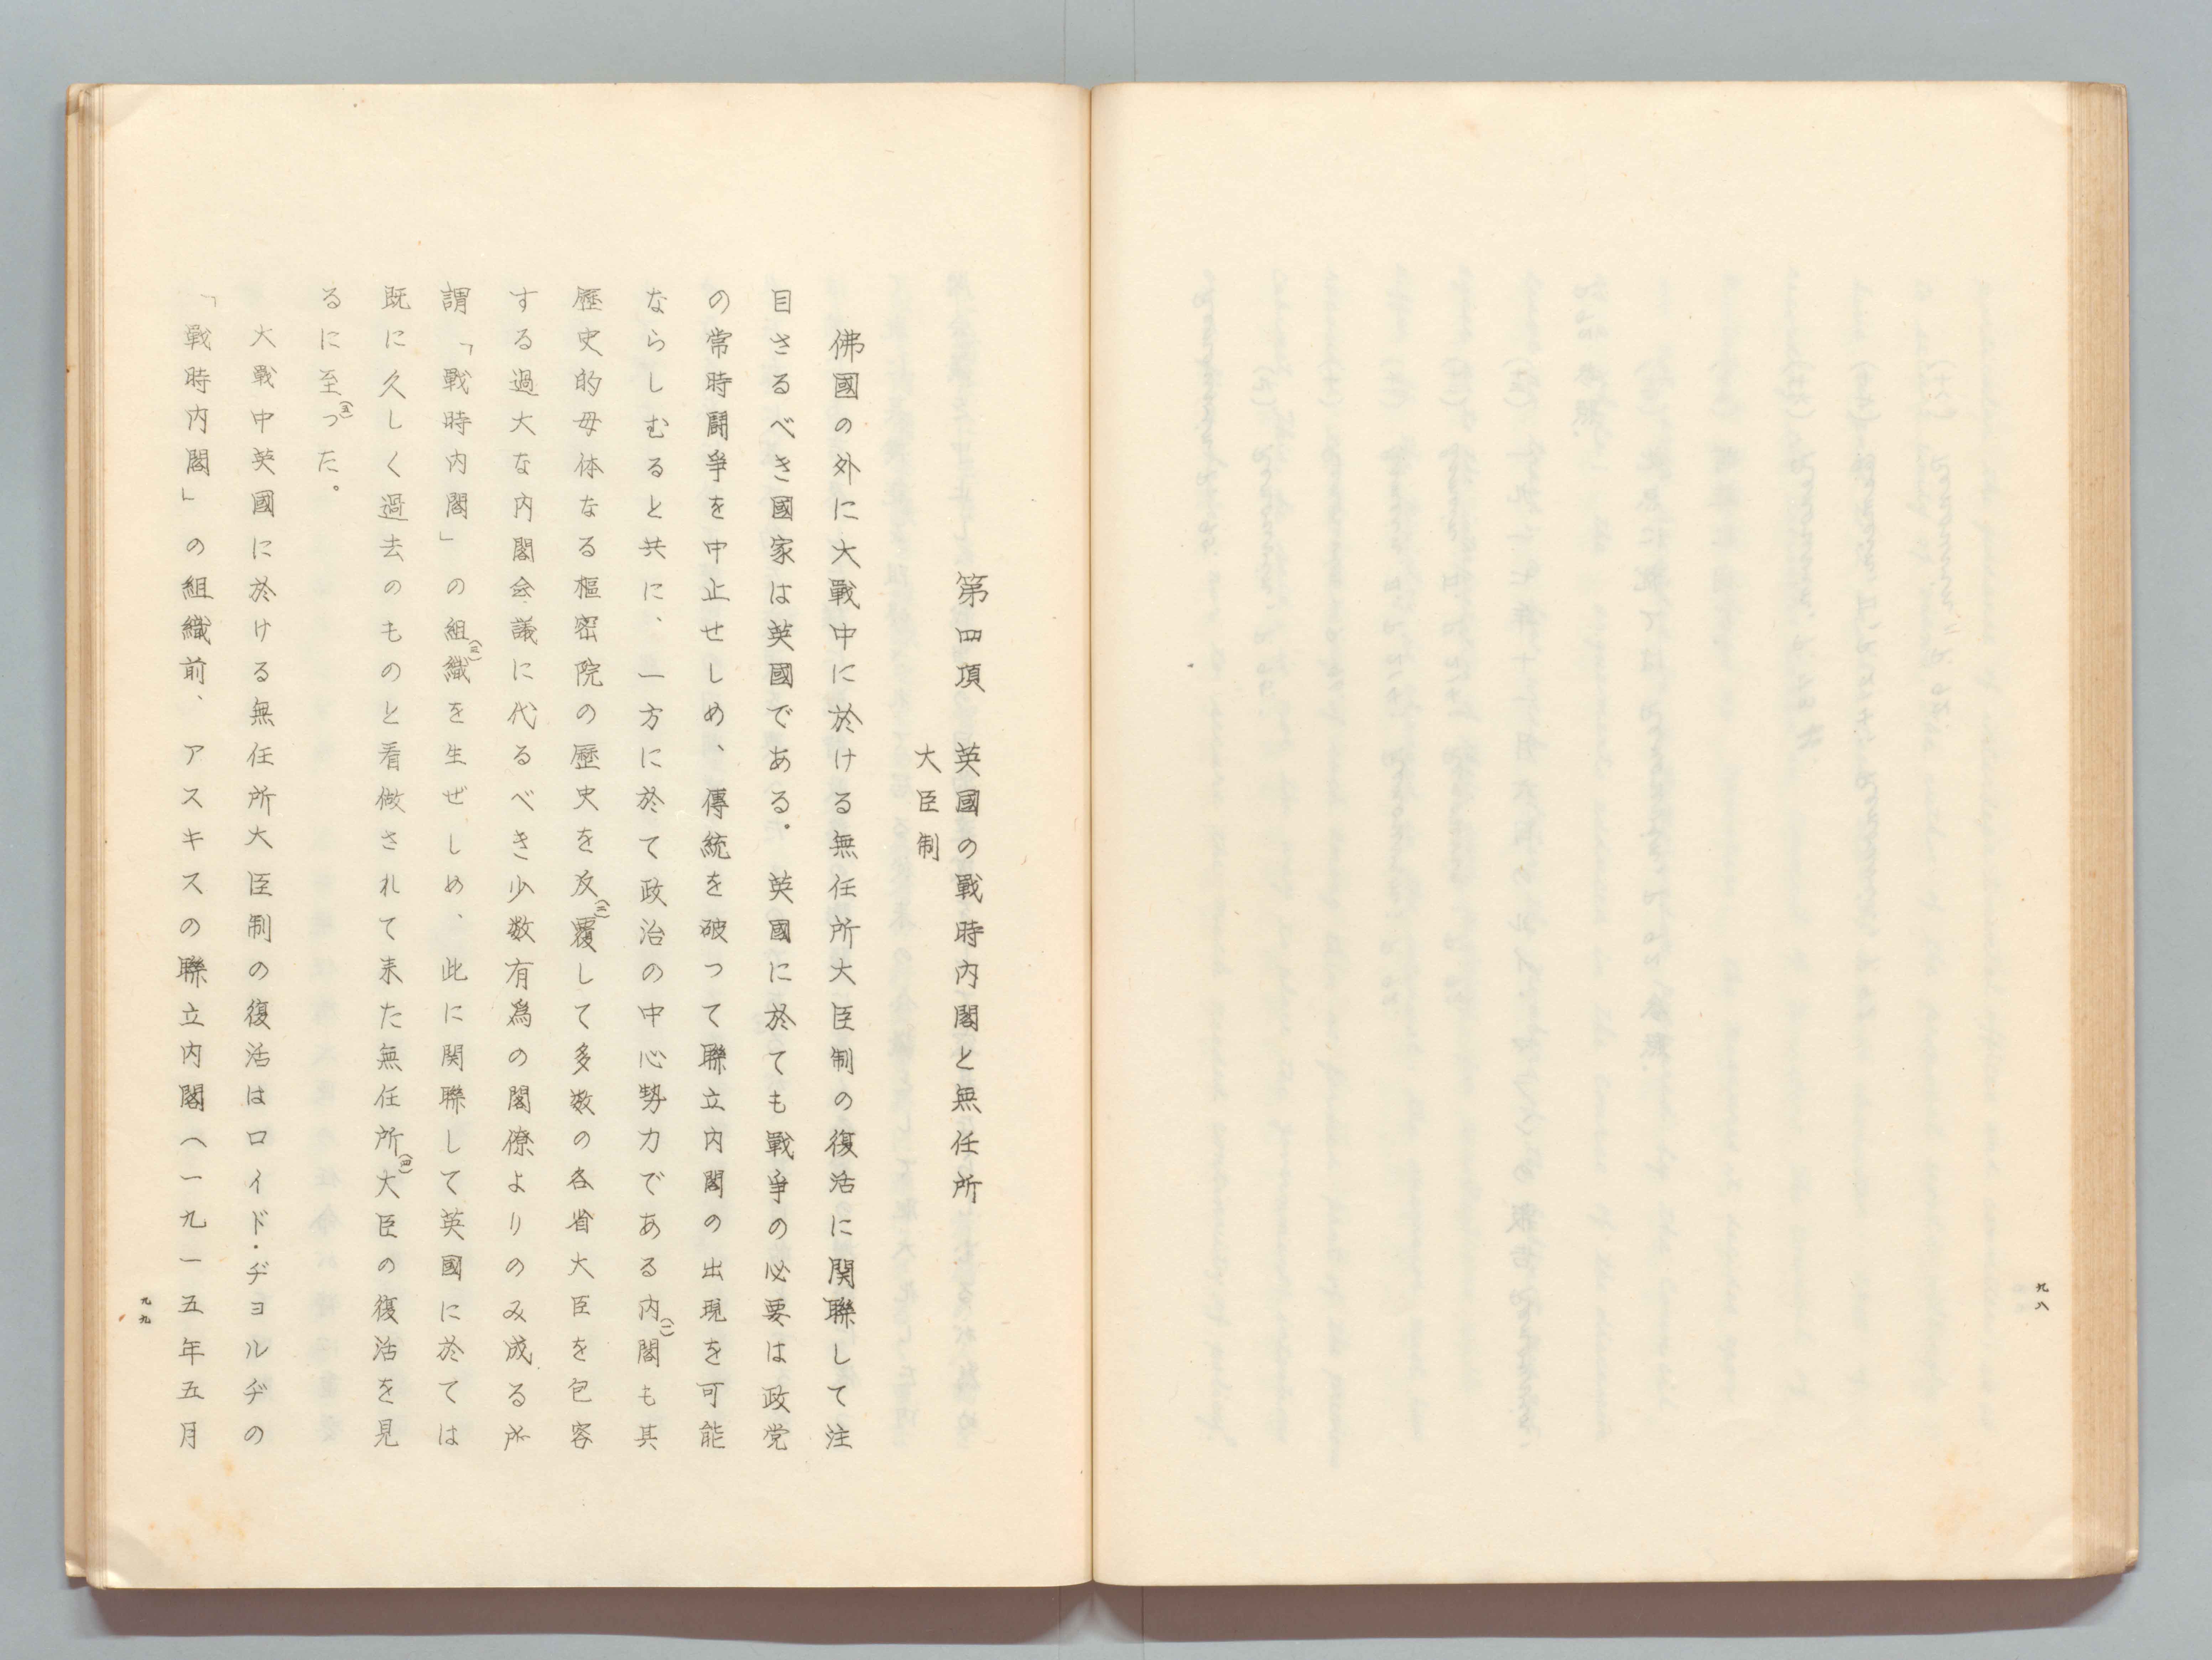 九八
第四項 英國の戰時内閣と無任所
大臣制
佛國の外に大戰中に於ける無任所大臣制の復活に関聯して注
目さるべき國家は英國である。英國に於ても戰爭の必要は政党
の常時闘爭を中止せしめ、傳統を破つて聯立内閣の出現を可能
ならしむると共に、一方に於て政治の中心勢力である内閣(一)も其
歷史的母体なる樞密院の歷史を反覆(二)して多数の各省大臣を包容
する過大な内閣会議に代るべき少数有爲の閣僚よりのみ成る所
謂「戰時内閣」の組織(三)を生ぜしめ、此に関聯して英國に於ては
既に久しく過去のものと看做されて来た無任所大臣(四)の復活を見
るに至つた(五)。
大戰中英國に於ける無任所大臣制の復活はロイド・ヂヨルヂの
「戰時内閣」の組織前、アスキスの聯立内閣(一九一五年五月
九九